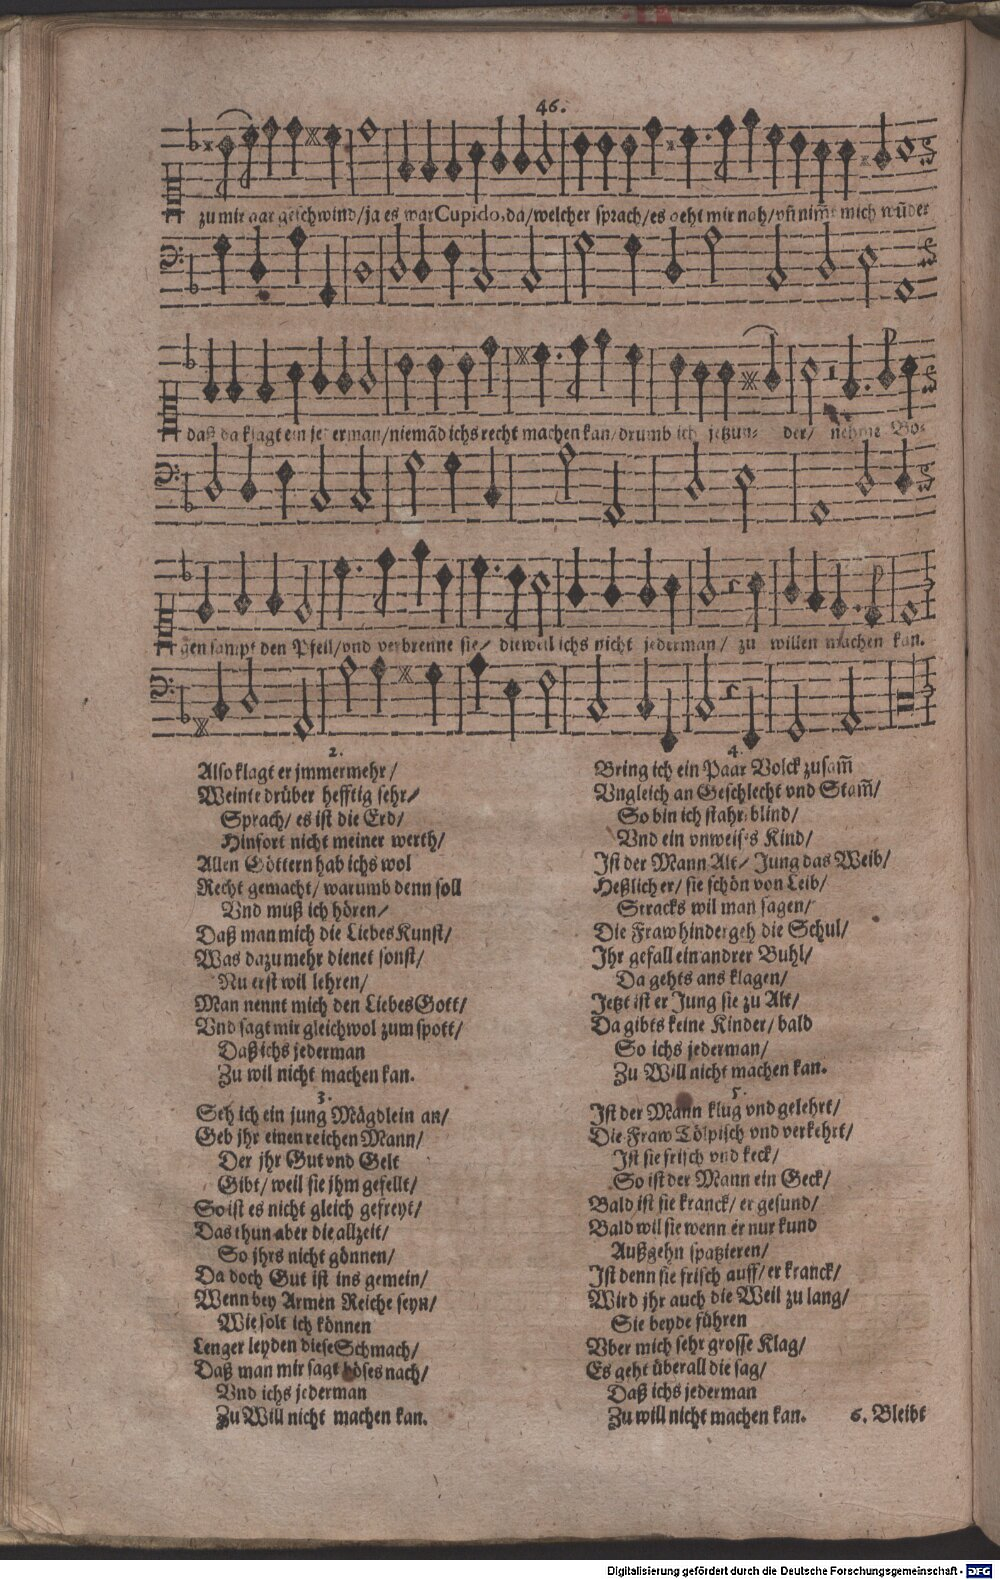 46.
zu mir gar geschwind/ja es war Cupido,da/welcher sprach/es geht mir nah/vñ nim̃t mich wũder
daß da klagt ein jederman/niemãd ichs recht machen kan/drumb ich jetzun= der/ nehme Bo=
gen sampt den Pfeil/vnd verbrenne sie/ dieweil ichs nicht jederman/ zu willen machen kan.
2.
Also klagt er jmmermehr/
Weinte drüber hefftig sehr/
Sprach/ es ist die Erd/
Hinfort nicht meiner werth/
Allen Göttern hab ichs wol
Recht gemacht/ warumb denn soll
Vnd muß ich hören/
Daß man mich die Liebes Kunst/
Was dazu mehr dienet sonst/
Nu erst wil lehren/
Man nennt mich den Liebes Gott/
Vnd sagt mir gleichwol zum spott/
Daß ichs jederman
Zu wil nicht machen kan.
3.
Seh ich ein jung Mägdlein an/
Geb jhr einen reichen Mann/
Der jhr Gut vnd Gelt
Gibt/ weil sie jhm gefellt/
So ist es nicht gleich gefreyt/
Das thun aber die allzeit/
So jhrs nicht gönnen/
Da doch Gut ist ins gemein/
Wenn bey Armen Reiche seyn/
Wie solt ich können
Lenger leyden diese Schmach/
Daß man mir sagt böses nach/
Vnd ichs jederman
Zu Will nicht machen kan.
4.
Bring ich ein Paar Volck zusam̃
Vngleich an Geschlecht vnd Stam̃/
So bin ich stahr blind/
Vnd ein vnweises Kind/
Ist der Mann Alt/ Jung das Weib/
Heßlich er/ sie schön von Leib/
Stracks wil man sagen/
Die Fraw hindergeh die Schul/
Ihr gefall ein andrer Buhl/
Da gehts ans klagen/
Jetzt ist er Jung sie zu Alt/
Da gibts keine Kinder/ bald
So ichs jederman/
Zu Will nicht machen kan.
5.
Ist der Mann klug vnd gelehrt/
Die Fraw Tölpisch vnd verkehrt/
Ist sie frisch vnd keck/
So ist der Mann ein Geck/
Bald ist sie kranck/ er gesund/
Bald wil sie wenn er nur kund
Außgehn spatzieren/
Ist denn sie frisch auff/ er kranck/
Wird jhr auch die Weil zu lang/
Sie beyde führen
Vber mich sehr grosse Klag/
Es geht überall die sag/
Daß ichs jederman
Zu will nicht machen kan.
6. Bleibt
Digitalisierung gefördert durch die Deutsche Forschungsgemeinschaft - DFG